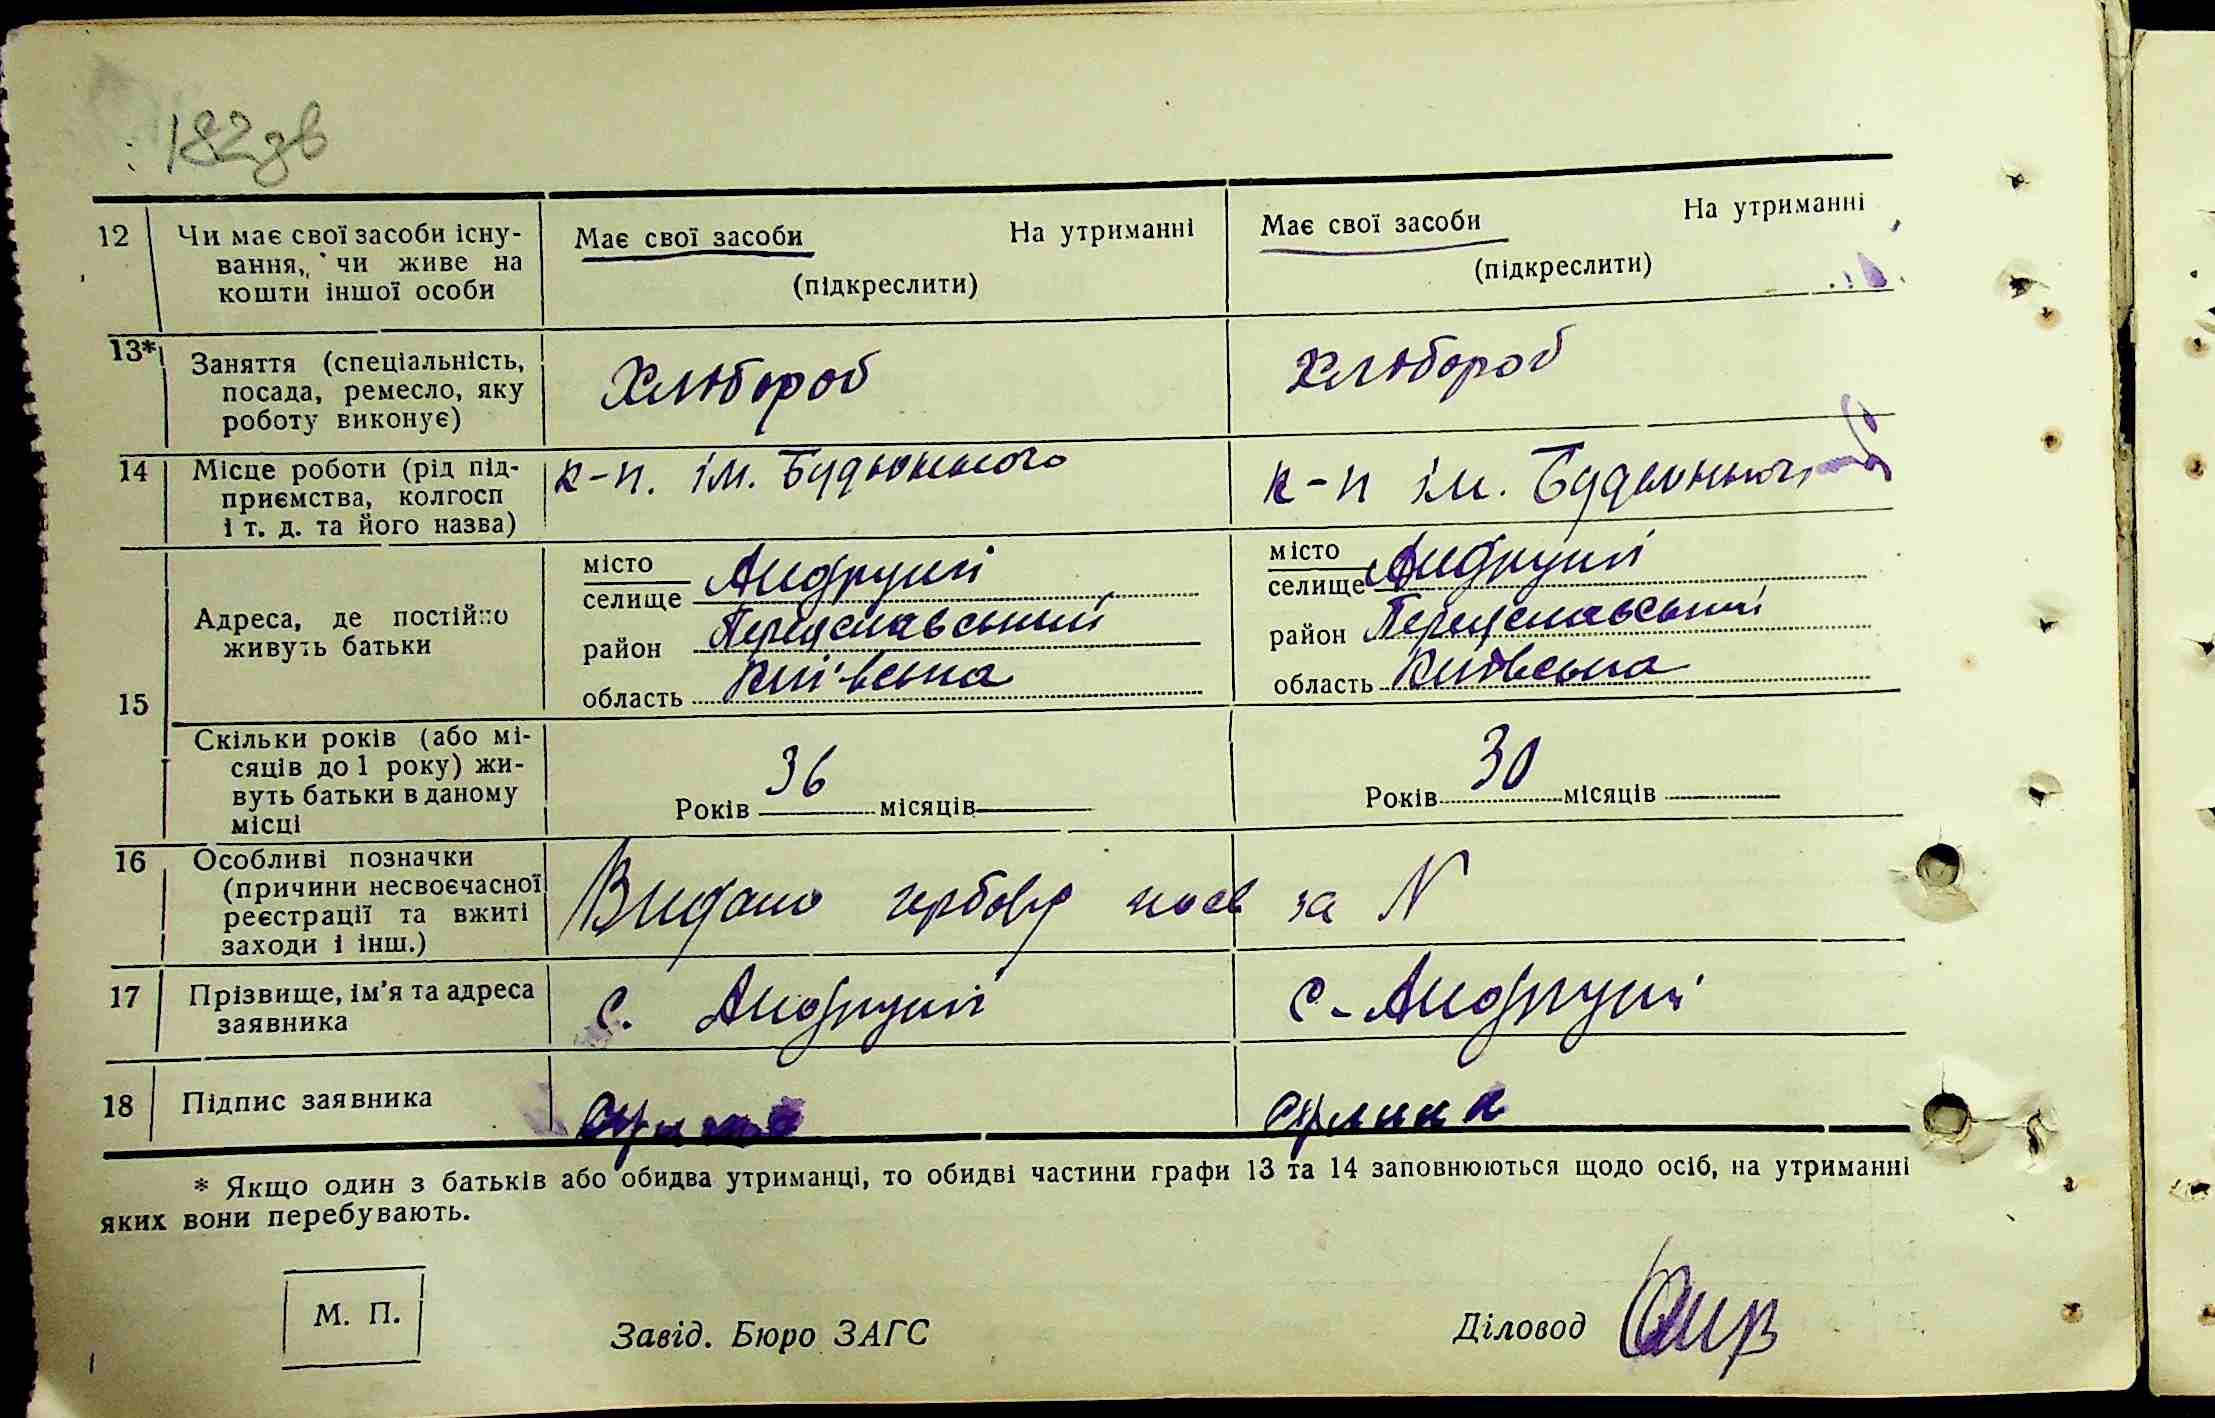 182 зв
12 Чи має свої засоби існу-
вання, чи живе на
кошти іншої особи
Має свої засоби На утриманні
(підкреслити)
Має свої засоби На утриманні
(підкреслити)
13* Заняття (спеціальність,
посада, ремесло, яку
роботу виконує)
Хлібороб
Хлібороб
14 Місце роботи (рід під-
приємства, колгосп
і т. д. та його назва)
к-п. ім. Будьонного
к-п ім. Будьонного
15
Адреса, де постійно
живуть батьки
місто
селище Андруші
район Переяславський
область Київська
місто
селище Андруші
район Переяславський
область Київська
Скільки років (або мі-
сяців до 1 року) жи-
вуть батьки в даному
місці
Років 36 місяців
Років 30 місяців
16 Особливі позначки
(причини несвоєчасної
реєстрації та вжиті
заходи і інш.)
Видано гербове за N
17 Прізвище, ім'я та адреса
заявника
с. Андруші
с-Андруші
18 Підпис заявника
* Якщо один з батьків або обидва утриманці, то обидві частини графи 13 та 14 заповнюються щодо осіб, на утриманні
яких вони перебувають.
М. П.
Завід. Бюро ЗАГС
Діловод